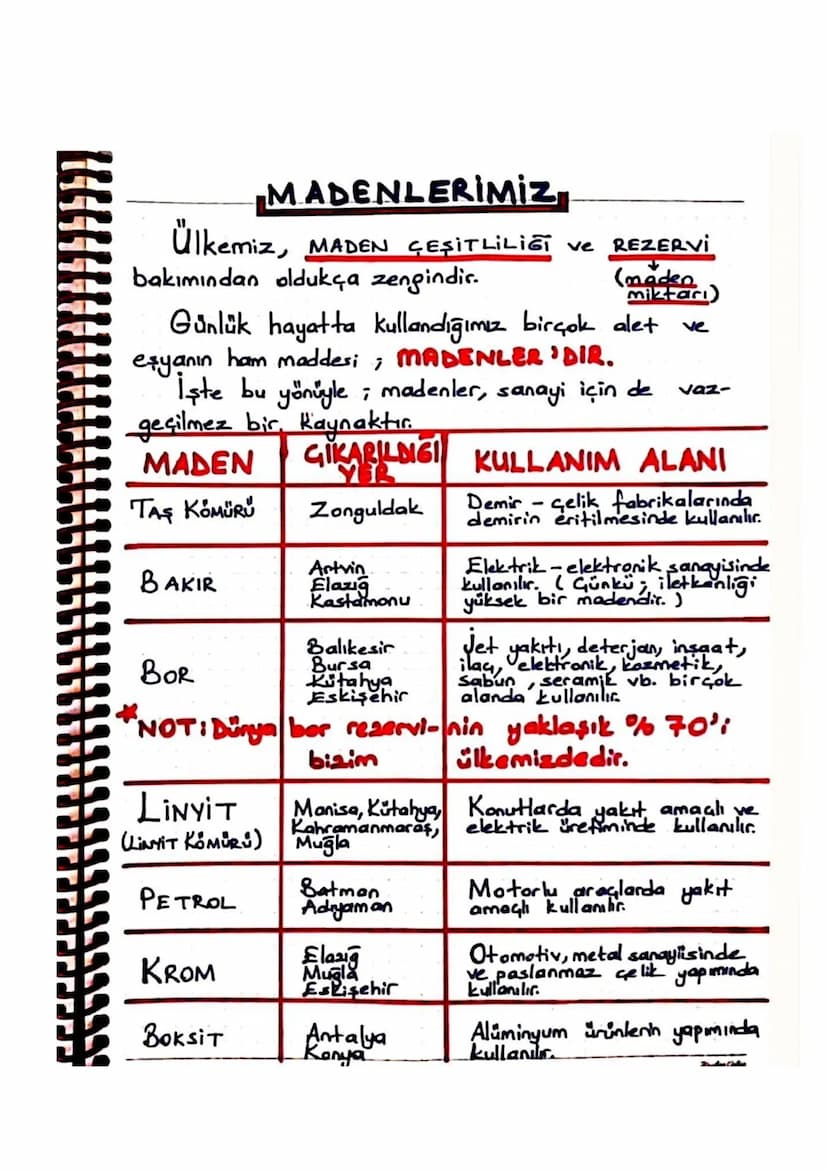 MADENLERİMİZ
Ülkemiz, MADEN ÇEŞİTLİLİĞİ ve REZERVİ
bakımından oldukça zengindir. (maden
miktarı)
Günlük hayatta kullandığımız birçok alet ve
eşyanın ham maddesi ; MADENLER'DIR.
İşte bu yönüyle ; madenler, sanayi için de vaz-
geçilmez bir kaynaktır.
MADEN ÇIKARILDIĞI YER KULLANIM ALANI
TAŞ KÖMÜRÜ Zonguldak Demir - çelik fabrikalarında
demirin eritilmesinde kullanılır.
BAKIR Artvin Elektrik - elektronik sanayisinde
Elazığ kullanılır. ( Çünkü ; iletkenliği
Kastamonu yüksek bir madendir. )
BOR Balıkesir Jet yakıtı, deterjan, inşaat,
Bursa ilaç, elektronik, kozmetik,
Kütahya sabun, seramik vb. birçok
Eskişehir alanda kullanılır.
*NOT: Dünya bor rezervi-nin yaklaşık % 70'i
bizim ülkemizdedir.
LİNYİT Manisa, Kütahya, Konutlarda yakıt amaçlı ve
(LİNYİT KÖMÜRÜ) Kahramanmaraş, elektrik üretiminde kullanılır.
Muğla
PETROL Batman Motorlu araçlarda yakıt
Adıyaman amaçlı kullanılır.
KROM Elazığ Otomotiv, metal sanayiisinde
Muğla ve paslanmaz çelik yapımında
Eskişehir kullanılır.
BOKSİT Antalya Alüminyum ürünlerin yapımında
Konya kullanılır.